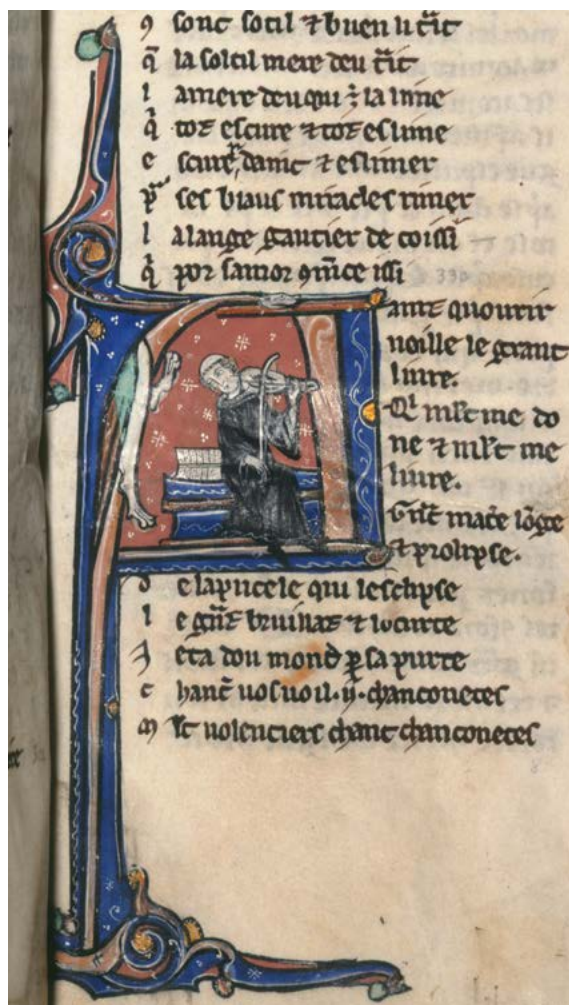 ꝯ sont sotil ⁊ buen li t̄it
q̃ la soltil mere deu t̄it
l amere deu qui ÷ la lime
q̃ tot escure ⁊ tot eslime
e scurer danit ⁊ eslimer
ꝑ ses biaus miracles rimer
l alange gautier de coissi
q̃ por samor ꝯmēce issi 330
Ainz quourir
uoille le grant
liure.
Q̃ ml̃t me do
ne ⁊ ml̃t me
liure.
G̃nt mat̃e lōge
et prolipse.
d e lapucele qui lesclypse
l e
eta dou mond ꝑ sa purte
c hant̃ uos uoil .ii. chanconetes
uolentiers chant chanconetes